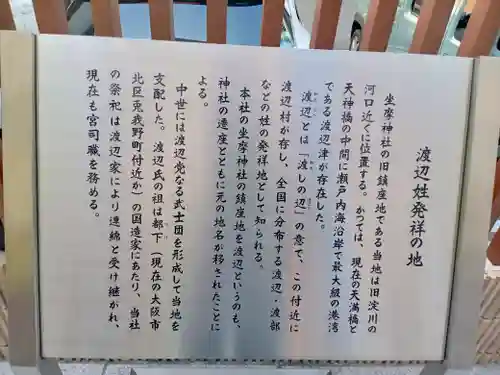 渡辺姓発祥の地
坐摩神社の旧鎮座地である当地は旧淀川の
河口近くに位置する。かつては、現在の天満橋と
天神橋の中間に瀬戸内海沿岸で最大級の港湾
である渡辺津が存在した。
渡辺とは「渡しの辺」の意で、この付近に
渡辺村が存し、全国に分布する渡辺・渡部
などの姓の発祥地として知られる。
本社の坐摩神社の鎮座地を渡辺というのも、
神社の遷座とともに元の地名が移されたことに
よる。
中世には渡辺党なる武士団を形成して当地を
支配した。渡辺氏の祖は都下（現在の大阪市
北区兎我野町付近か）の国造家にあたり、当社
の祭祀は渡辺家により連綿と受け継がれ、
現在も宮司職を務める。